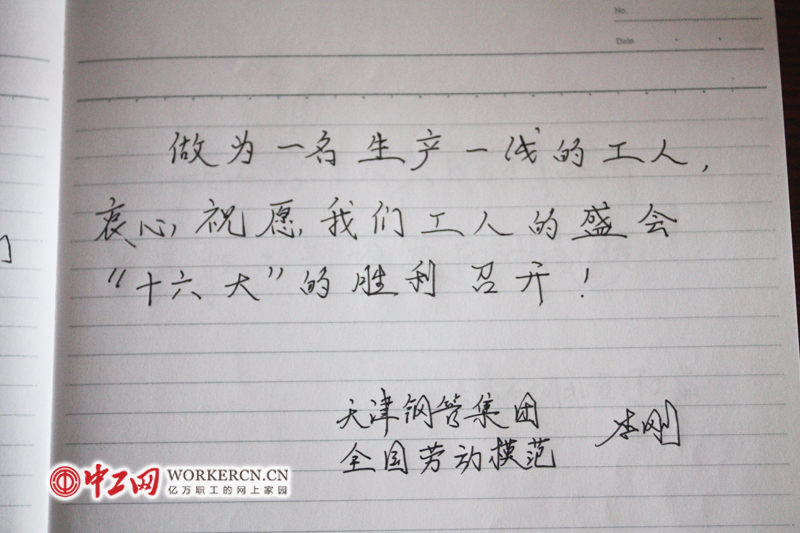 No.
Date
做为一名生产一线的工人，
衷心祝愿我们工人的盛会
“十六大”的胜利召开！
天津钢管集团
全国劳动模范
李刚
中工网
WORKERCN.CN
亿万职工的网上家园